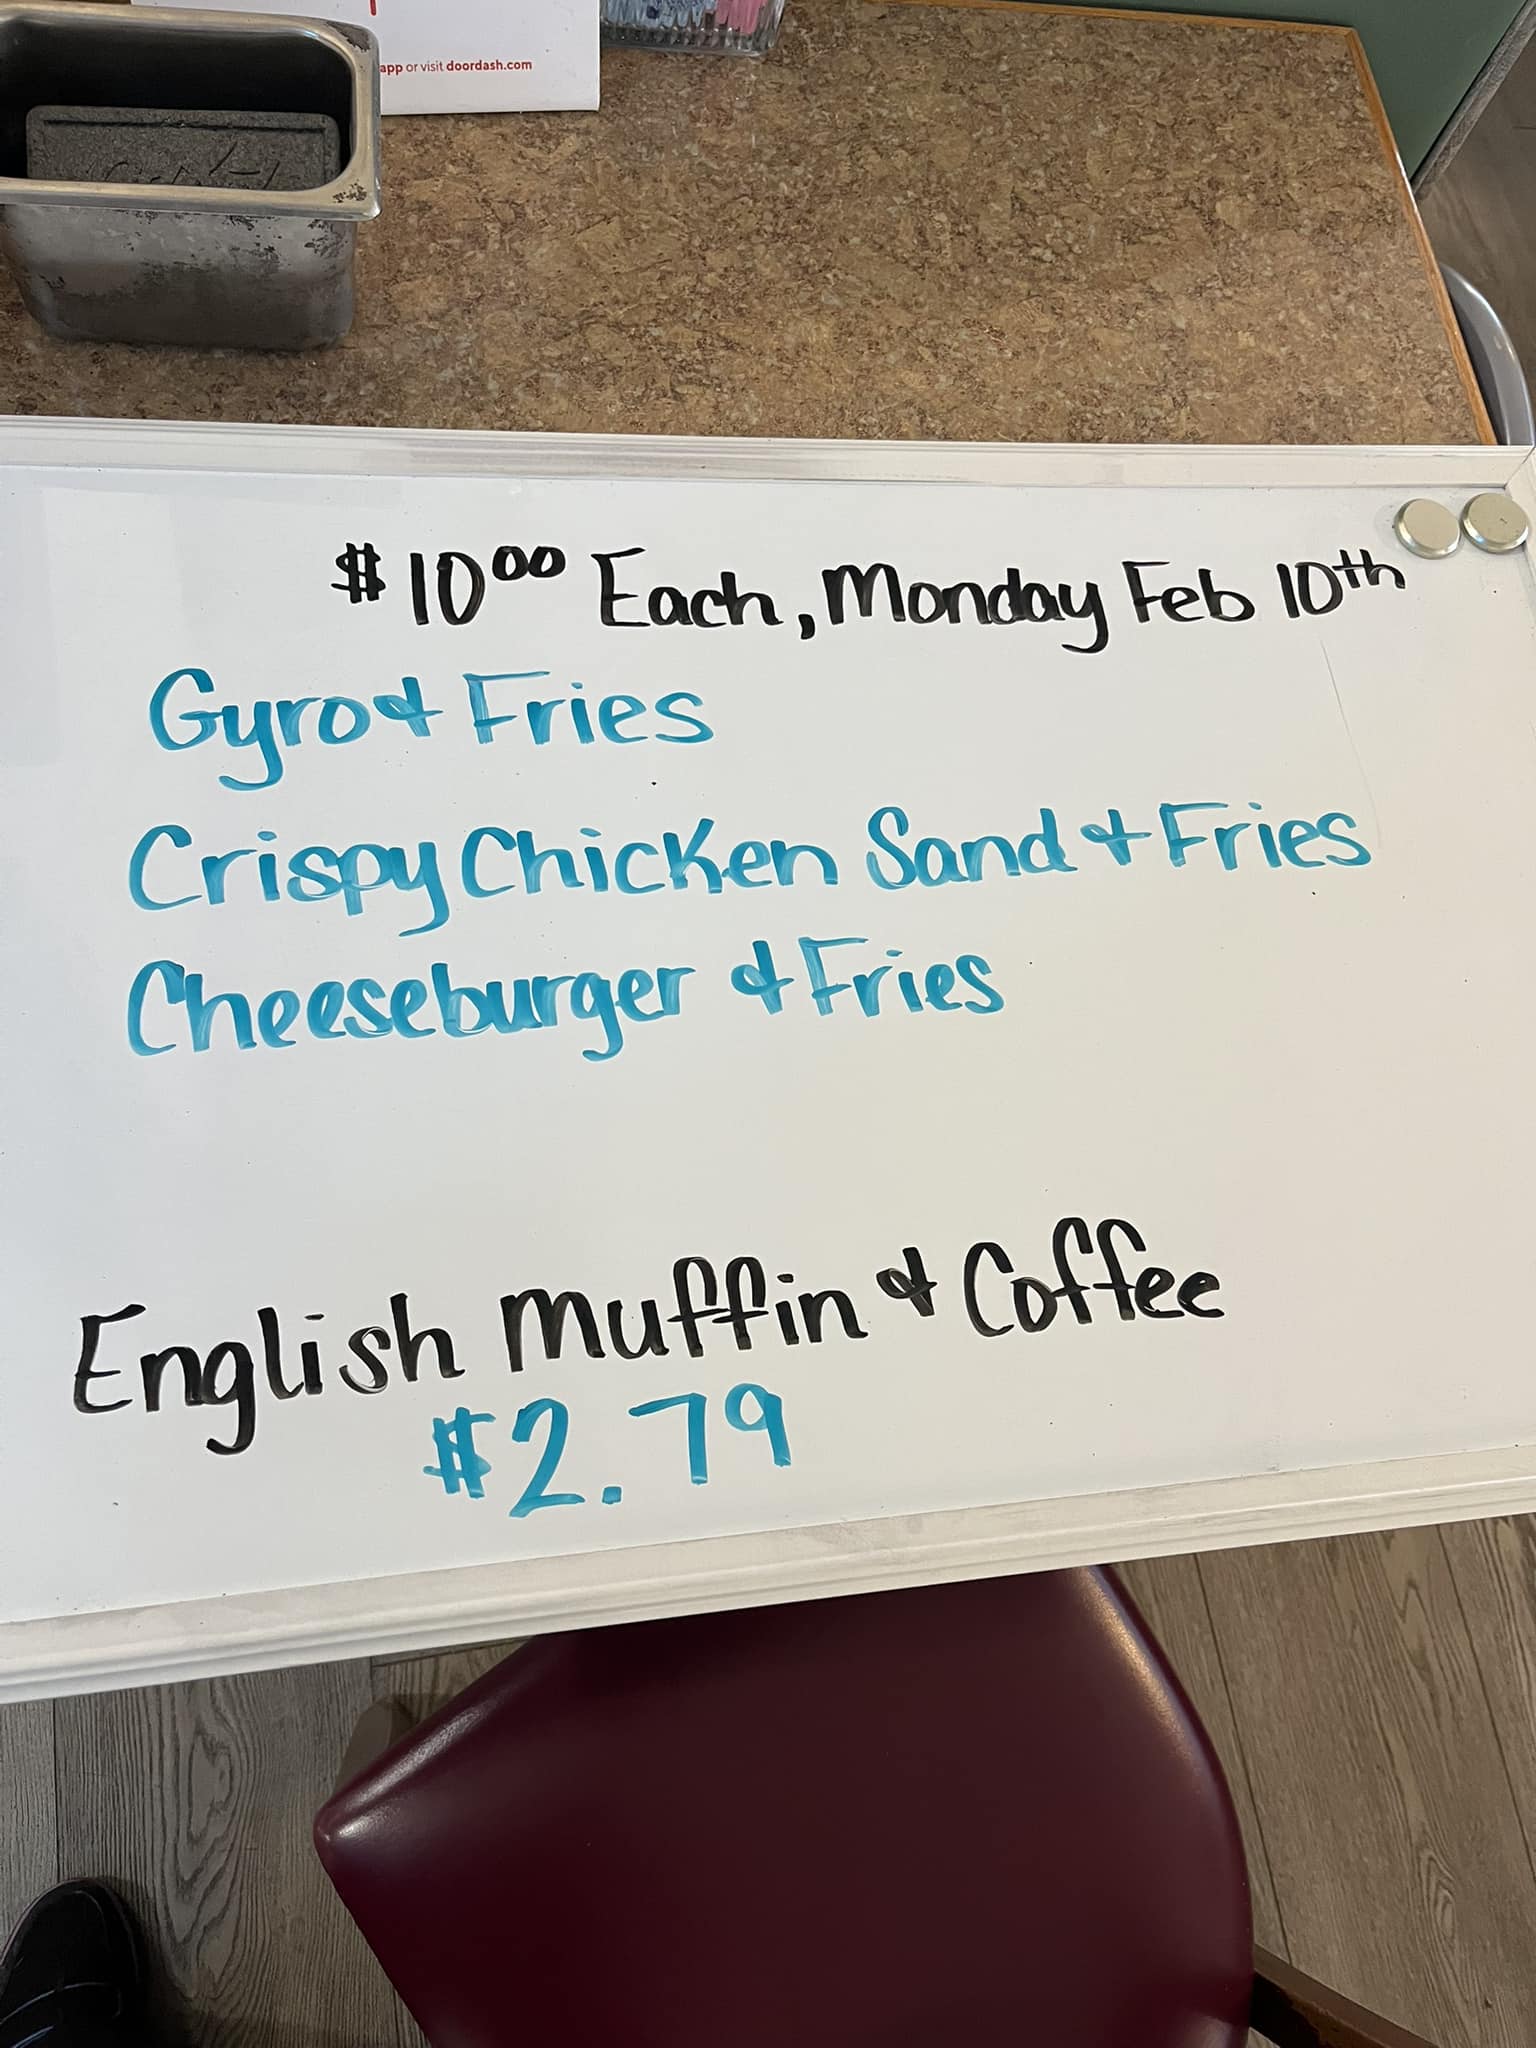 app or visit doordash.com
$10⁰⁰ Each, Monday Feb 10th
Gyro & Fries
Crispy Chicken Sand & Fries
Cheeseburger & Fries
English Muffin & Coffee
$2.79